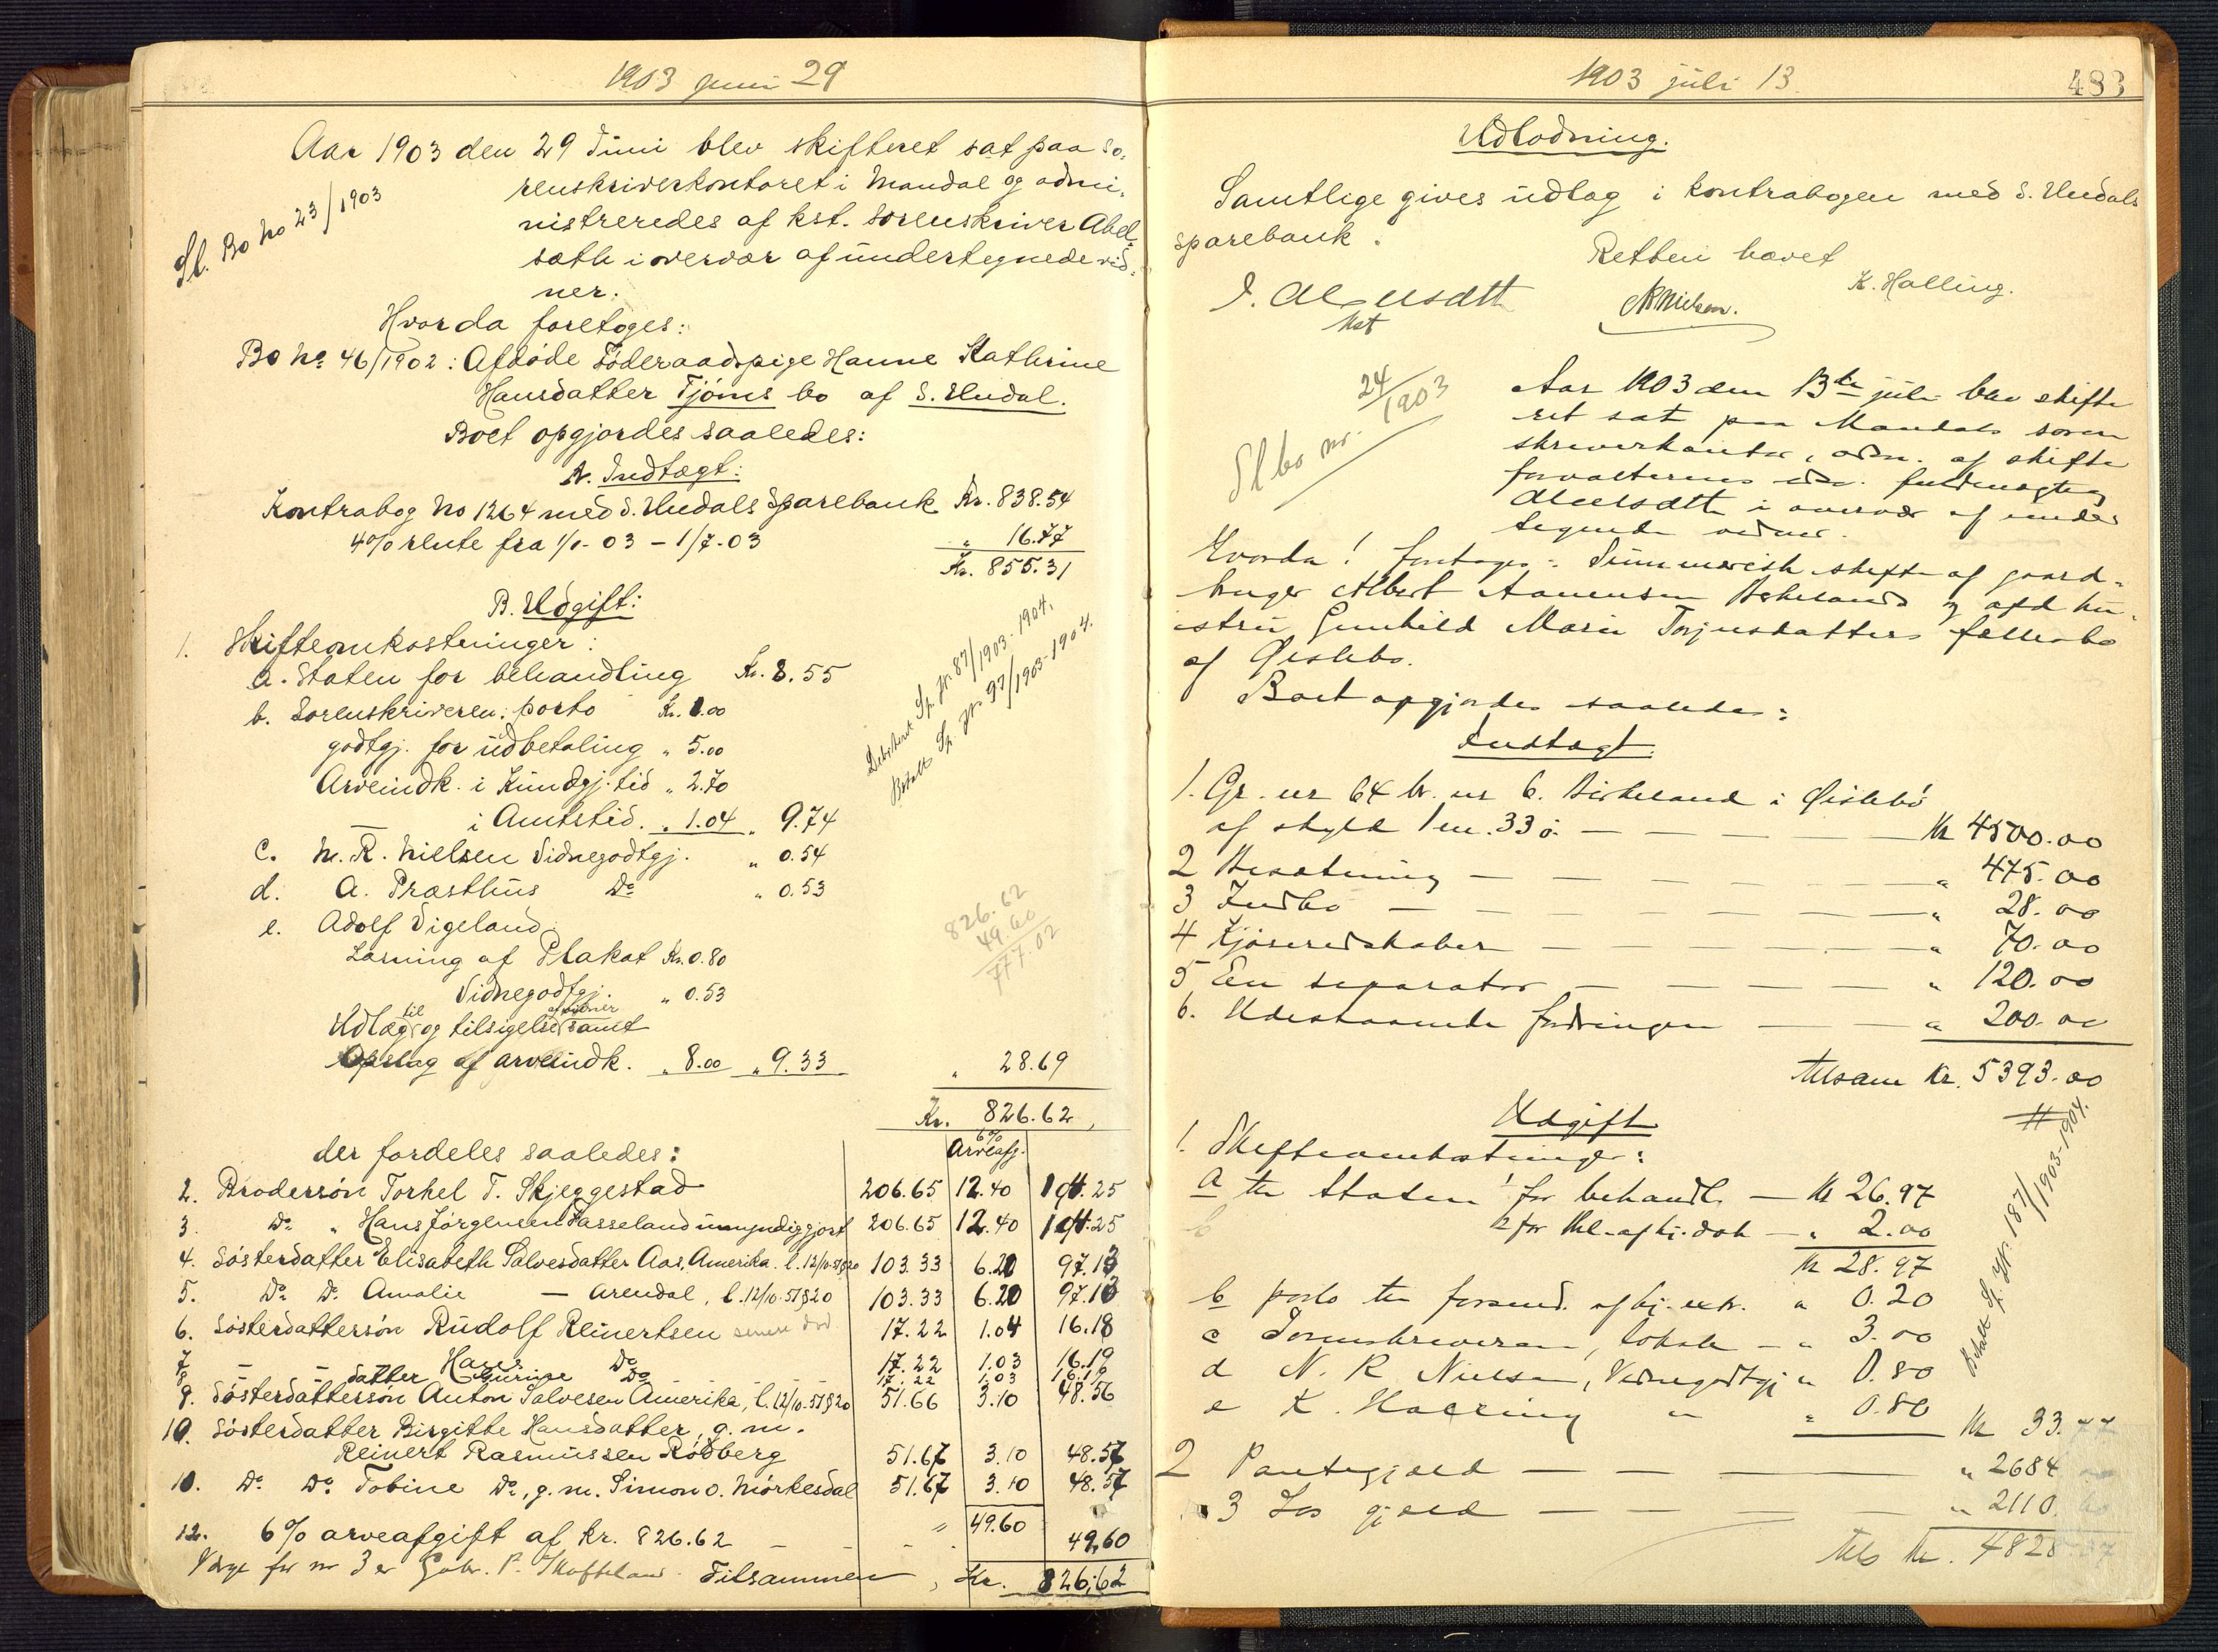 1903 juni 29
Aar 1903 den 29 Juni blev skifteret sat paa So-
renskriverkontoret i Mandal og admi-
nistreredes af kst. sorenskriver Abel-
sæth i overvær af undertegnede vid-
ner.
Sl. Bo No 23/1903
Hvorda foretoges:
Bo No 46/1902: Afdøde Føderaadspige Hanne Kathrine
Hansdatter Tjøms bo af S. Undal.
Boet opgjordes saaledes:
A. Indtægt:
Kontrabog No 1264 med S. Undals Sparebank Kr. 838.54
4% rente fra 1/1-03 – 1/7-03 " 16.77
Kr. 855.31
B. Udgift:
1. Skifteomkostninger:
a. Staten for behandling Kr. 8.55
b. Sorenskriveren: porto Kr. 1.00
godtgj. for udbetaling " 5.00
Arveindk. i Kundgj. tid " 2.70
— i Amtstid. " 1.04 " 9.74
c. N. R. Nielsen Vidnegodtgj. " 0.54
d. A. Præsthus Do " 0.53
e. Adolf Vigeland:
Læsning af Plakat Kr. 0.80
Vidnegodtgj. " 0.53
Udlæg til og tilsigelse af vidner samt
Opslag af arveindk. " 8.00 " 9.33 " 28.69
Kr. 826.62
Debiteret Sp. Jr. 87/1903-1904.
Betalt Sp. Jr. 97/1903-1904.
826.62
49.60
777.02
der fordeles saaledes: 6% Arveafg.
2. Brodersøn Torkel T. Skjeggestad 206.65 12.40 194.25
3. Do " Hans Jørgensen Fasseland umyndiggjort 206.65 12.40 194.25
4. Søsterdatter Elisabeth Salvesdatter Aas, Amerika. l. 12/10-57§20 103.33 6.20 97.13
5. Do Do Amalie — Arendal, l. 12/10-57§20 103.33 6.20 97.13
6. Søsterdattersøn Rudolf Reinertsen 17.22 1.04 16.18
7 — — Hans Do 17.22 1.03 16.19
8 datter Gurine Do 17.22 1.03 16.19
9. Søsterdattersøn Anton Salvesen Amerika, l. 12/10-57§20 51.66 3.10 48.56
10. Søsterdatter Birgitte Hansdatter, g. m.
Reinert Rasmussen Rødberg 51.67 3.10 48.57
10. Do Do Tobine Do, g. m. Simon O. Mørkesdal 51.67 3.10 48.57
49.60
12. 6% arveafgift af kr. 826.62 — — " — 49,60
Værge for nr 3 er Gabr. P. Skofteland. Tilsammen, Kr. 826,62
1903 juli 13.
483
Udlodning.
Samtlige gives udlag i kontrabogen med S. Undals
Sparebank.
Retten hævet
kst
NRNielsen.
K. Halling.
Sl bo nr. 24/1903
Aar 1903 den 13de juli blev skifte
ret sat paa Mandals soren
skriverkontor, adm. af skifte
forvalterens edsv. fuldmægtig
Abelsæth i overvær af under
tegnede vidner.
Hvorda! foretoges: Summarisk skifte af gaard-
bruger Albert Aanensen Birkelands og afd hu-
stru Gunhild Marie Torjusdatters fællesbo
af Øislebø.
Boet opgjordes saaledes:
Indtægt.
1. Gr. nr 64 br. nr 6. Birkeland i Øislebø
af skyld 1 m. 33 ø. — — — — Kr 4500.00
2 Besætning — — — — " 475.00
3 Indbo — — — — " 28.00
4 Kjøreredskaber — — — — " 70.00
5 En separator — — — — " 120.00
6. Udestaaende fordringer — — " 200.00
tilsam Kr. 5393.00
Udgift
1. Skifteomkostninger:
a til Staten! for behandl. — Kr 26.97
2.00
Kr 28.97
b porto til forsend. af hj. extr. " 0.20
c Sorenskriveren, lokale — " 3.00
d N. R. Nielsen, Vidnegodtgj " 0.80
e K. Halling " " 0.80 Kr 33.77
Betalt Sp. Jr. 187/1903-1904.
2 Pantegjæld — — — — " 2684.00
3 Løs gjæld — — — — " 2110.
tils Kr. 4828